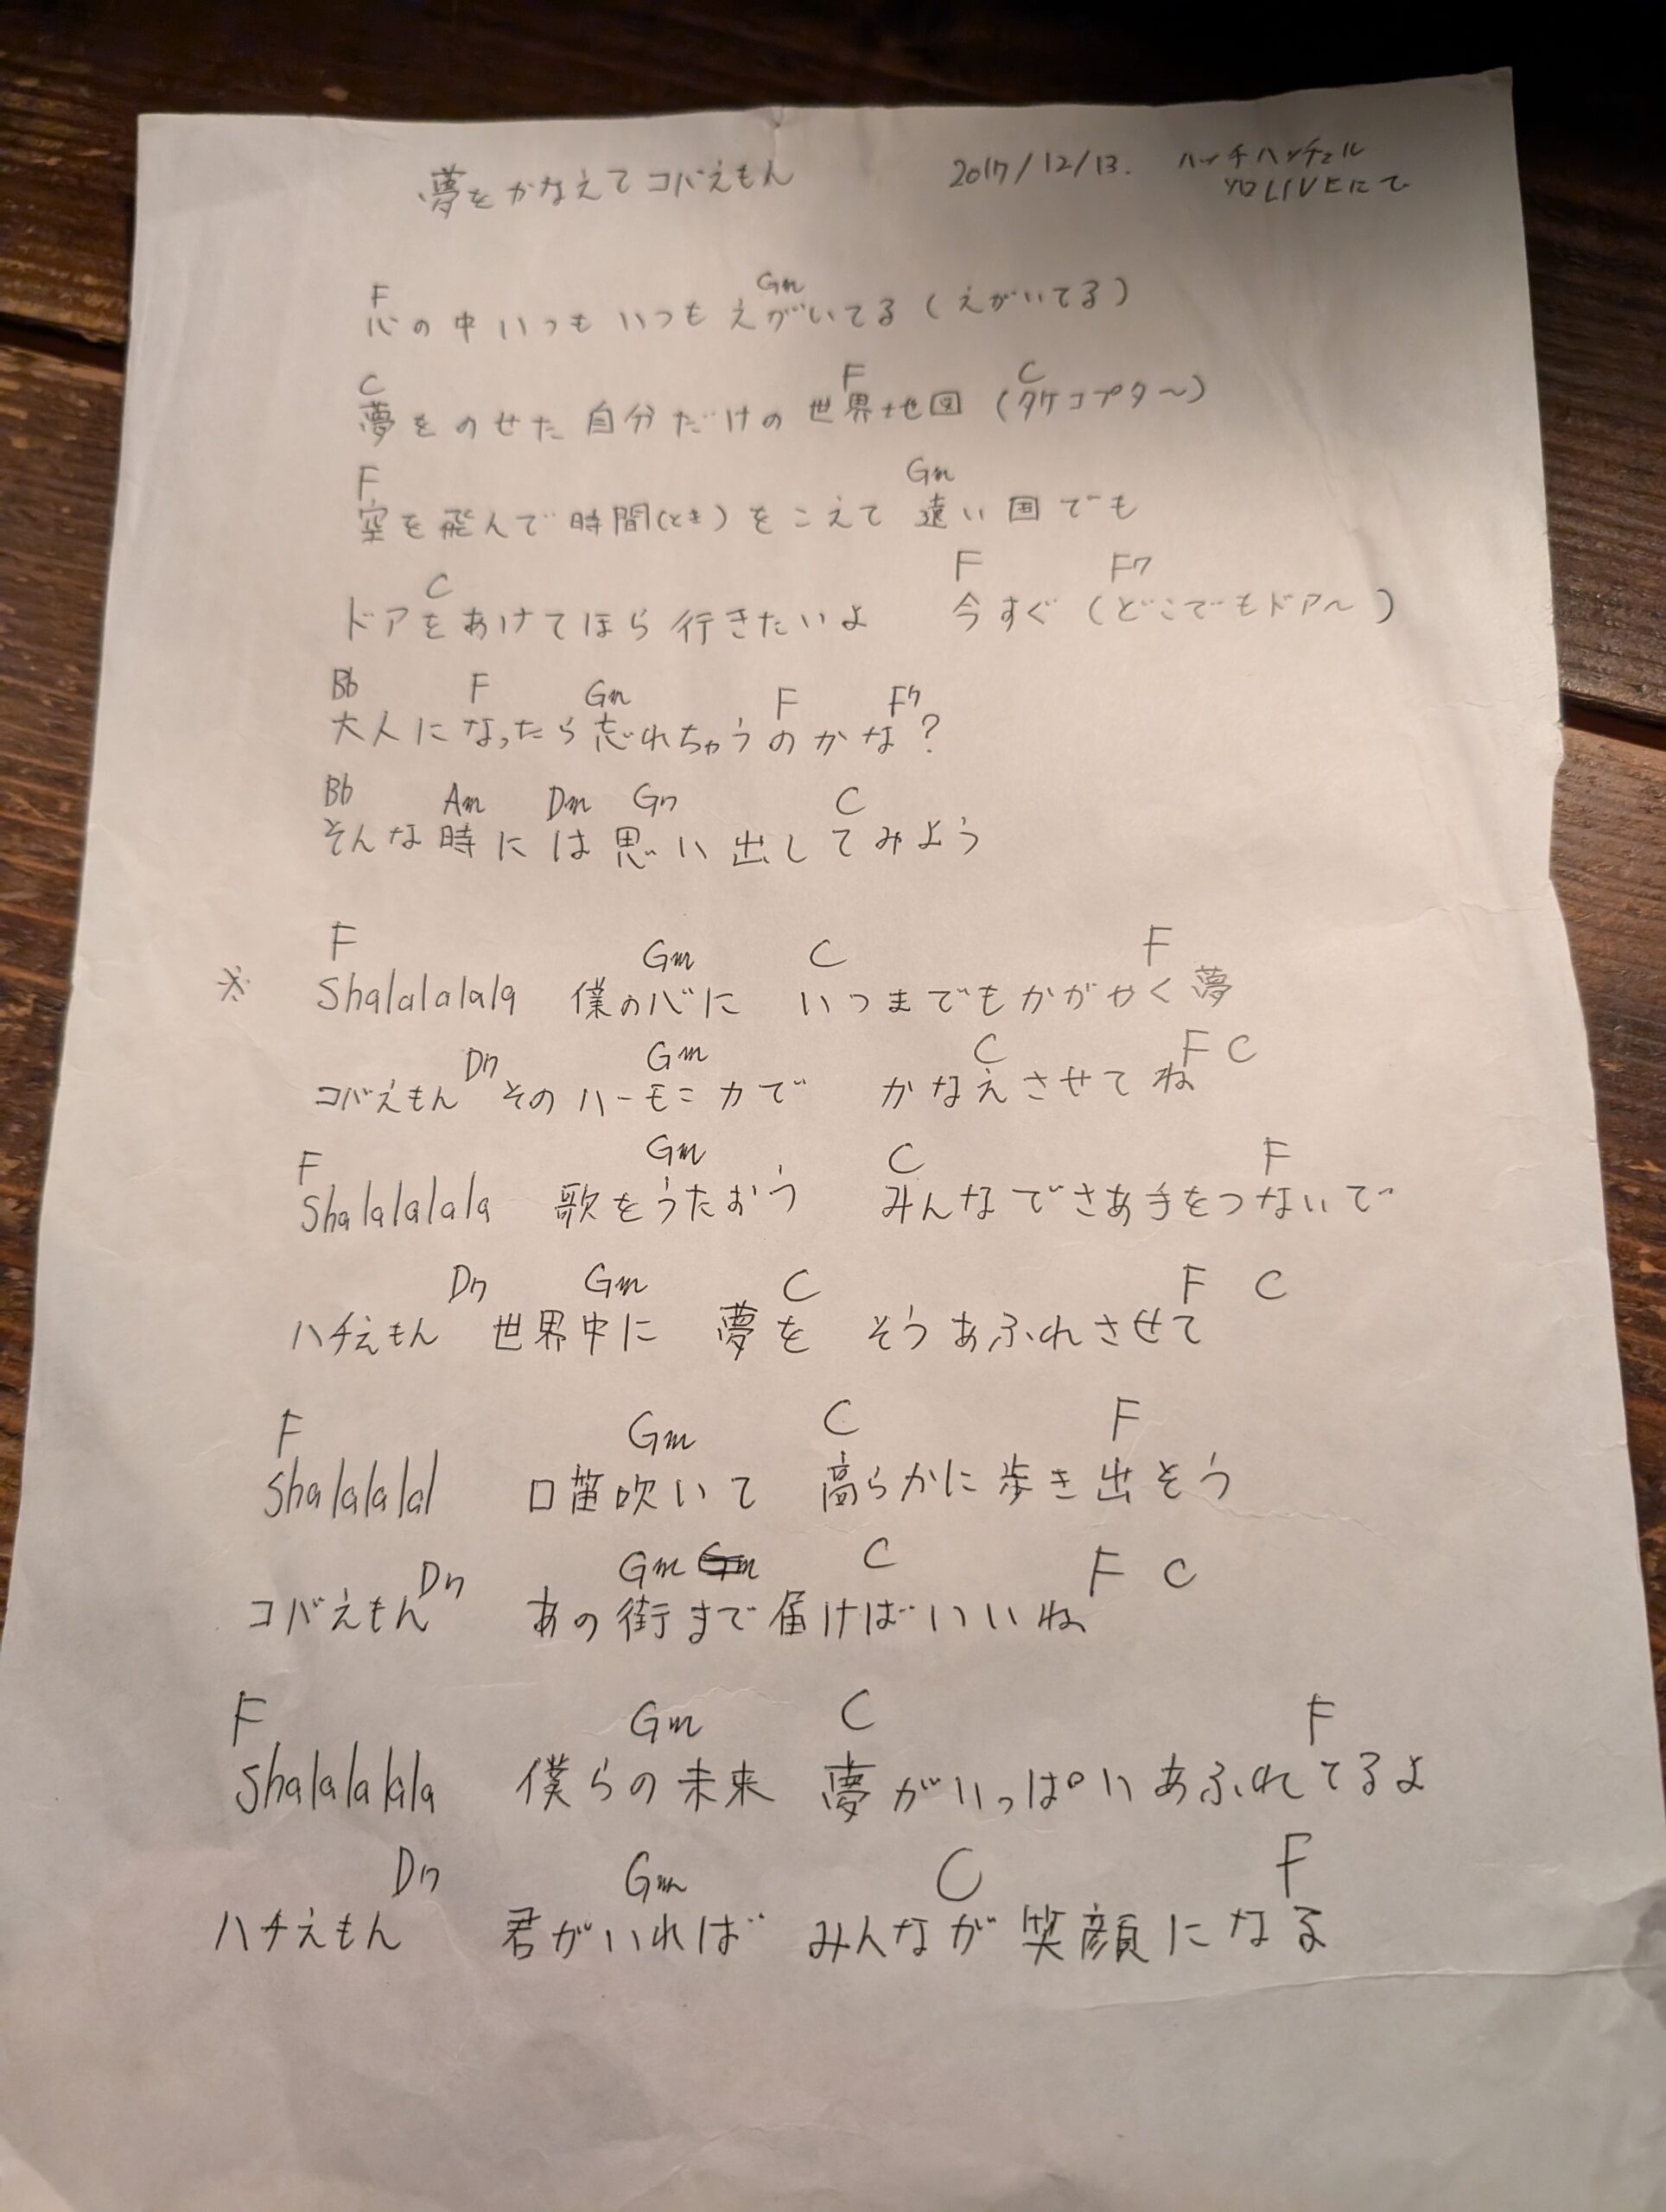 夢をかなえてコバえもん 2017/12/13. ハッチハッチェル
ソロLIVEにて
F Gm
心の中いつもいつもえがいてる(えがいてる)
C F C
夢をのせた自分だけの世界地図(タケコプタ〜)
F Gm
空を飛んで時間(とき)をこえて遠い国でも
C F F7
ドアをあけてほら行きたいよ 今すぐ(どこでもドア〜)
Bb F Gm F F7
大人になったら忘れちゃうのかな?
Bb Am Dm G7 C
そんな時には思い出してみよう
F Gm C F
※ Shalalalala 僕の心に いつまでもかがやく夢
D7 Gm C F C
コバえもん そのハーモニカで かなえさせてね
F Gm C F
Shalalalala 歌をうたおう みんなでさあ手をつないで
D7 Gm C F C
ハチえもん 世界中に 夢を そうあふれさせて
F Gm C F
Shalalalal 口笛吹いて 高らかに歩き出そう
D7 Gm Gm C F C
コバえもん あの街まで届けばいいね
F Gm C F
Shalalalala 僕らの未来 夢がいっぱいあふれてるよ
D7 Gm C F
ハチえもん 君がいれば みんなが笑顔になる